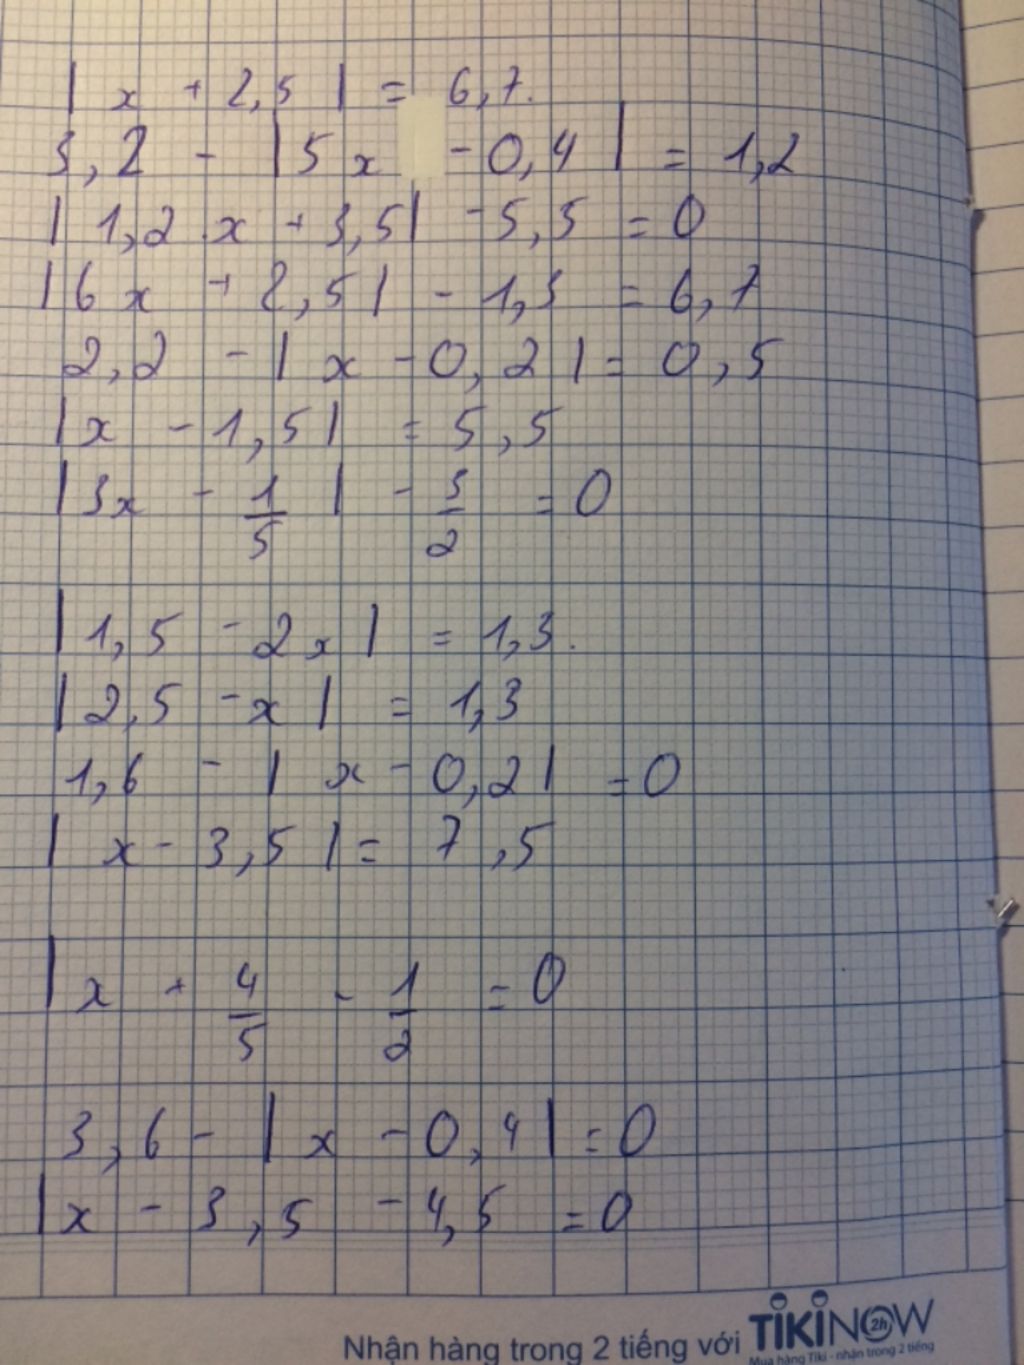 | x + 2,5 | = 6,7.
3,2 - | 5x - 0,4 | = 1,2
| 1,2 x + 3,5 | - 5,5 = 0
| 6x + 2,5 | - 1,3 = 6,7
2,2 - | x - 0,2 | = 0,5
| x - 1,5 | = 5,5
| 3x - 1/5 | - 3/2 = 0
| 1,5 - 2x | = 1,3.
| 2,5 - x | = 1,3
1,6 - | x - 0,2 | = 0
| x - 3,5 | = 7,5
| x + 4/5 - 1/2 = 0
3,6 - | x - 0,4 | = 0
| x - 3,5 - 4,5 = 0
Nhận hàng trong 2 tiếng với TIKINOW 2h
Mua hàng Tiki - nhận trong 2 tiếng